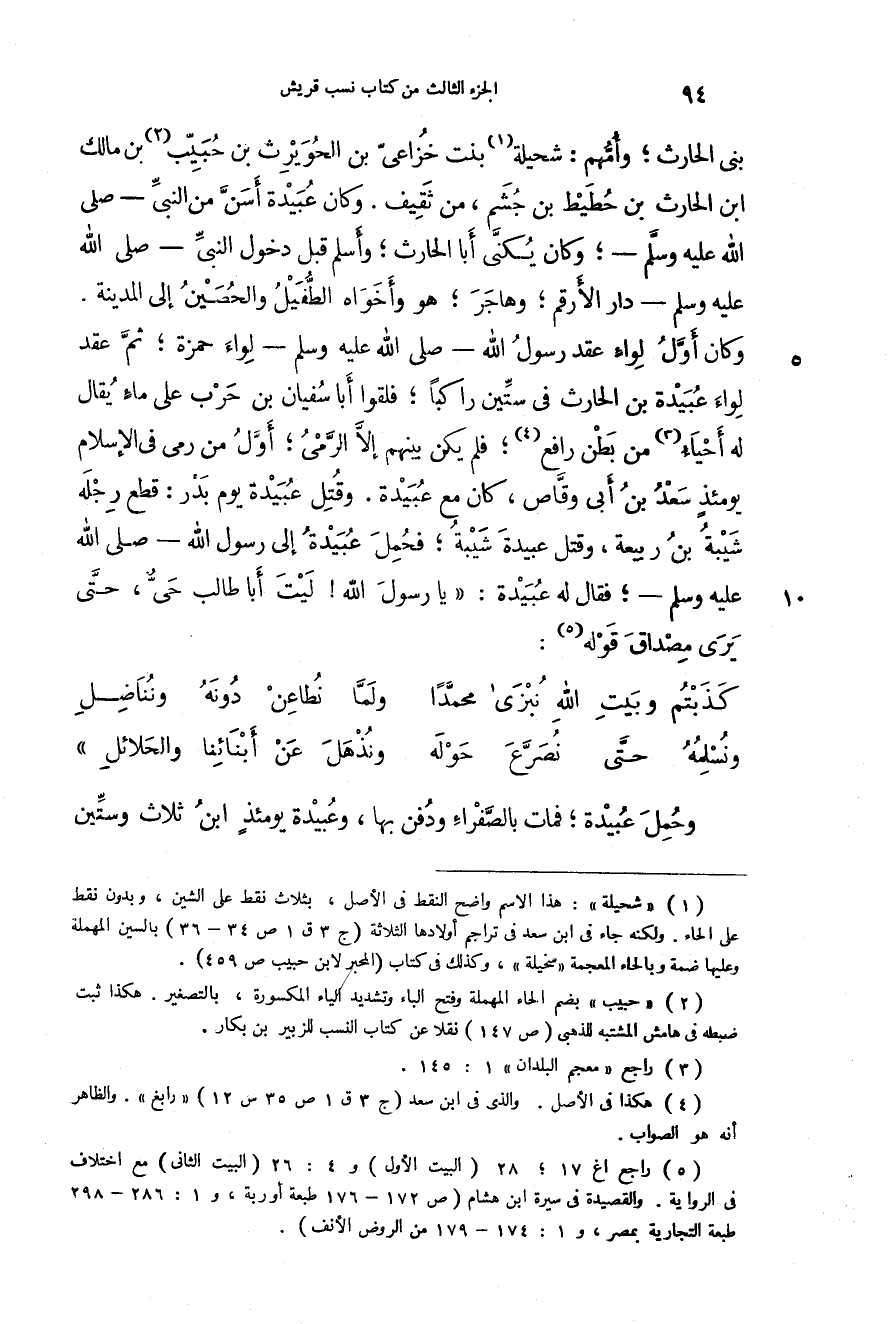 ٩٤ الجزء الثالث من كتاب نسب قريش
بنى الحارث ؛ وأمُّهم : شحيلة(١) بنت خُزاعىّ بن الحوَيْرِث بن حُبَيِّب(٢) بن مالك
ابن الحارث بن حُطَيْط بن جُشَم ، من ثَقِيف . وكان عُبَيْدة أَسَنَّ من النبىِّ — صلى
الله عليه وسلَّم — ؛ وكان يُسكنَّى أبا الحارث ؛ وأسلم قبل دخول النبىِّ — صلى الله
عليه وسلم — دار الأرقم ؛ وهاجَرَ ؛ هو وأَخَوَاه الطُّفَيْلُ والحُصَيْنُ إلى المدينة .
وكان أَوَّلُ لِواءِ عقد رسولُ الله — صلى الله عليه وسلم — لِواءَ حمزة ؛ ثمَّ عقد ٥
لِواءَ عُبَيْدة بن الحارث فى ستِّين راكباً ؛ فلقوا أبا سُفيان بن حَرْب على ماءِ يُقال
له أَحْيَاءِ(٣) من بَطْن رافع(٤) ؛ فلم يكن بينهم إلاَّ الرَّمْىُ ؛ أَوَّلُ من رمى فى الإسلام
يومئذٍ سَعْدُ بنُ أبى وقَّاص ، كان مع عُبَيْدة . وقُتِل عُبَيْدة يوم بَدْر : قطع رِجْلَه
شَيْبةُ بنُ ربيعة ، وقتل عبيدةَ شَيْبةُ ؛ فحُمِلَ عُبَيْدةُ إلى رسول الله — صلى الله
عليه وسلم — ؛ فقال له عُبَيْدة : « يا رسولَ الله ! لَيْتَ أبا طالب حَىٌّ ، حتَّى ١٠
يَرَى مِصْداقَ قَوْله(٥) :
كَذَبْتُم وبَيتِ اللهِ نُبْزَى محمدًا ولَمَّا نُطاعِنْ دُونَهُ ونُنَاضِلِ
ونُسْلِمُهُ حتَّى نُصَرَّعَ حَوْلَه ونُذْهَلَ عَنْ أَبْنَائِنا والحَلائلِ »
وحُمِلَ عُبيْدة ؛ فمات بالصَّفْراءِ ودُفن بها ، وعُبيْدة يومئذٍ ابنُ ثلاث وستِّين
(١) « شحيلة » : هذا الاسم واضح النقط فى الأصل ، بثلاث نقط على الشين ، وبدون نقط
على الحاء . ولكنه جاء فى ابن سعد فى تراجم أولادها الثلاثة ( ج ٣ ق ١ ص ٣٤ – ٣٦ ) بالسين المهملة
وعليها ضمة وبالخاء المعجمة « سخيلة » ، وكذلك فى كتاب ( المحبر لابن حبيب ص ٤٥٩ ) .
(٢) « حبيب » بضم الحاء المهملة وفتح الباء وتشديد الياء المكسورة ، بالتصغير . هكذا ثبت
ضبطه فى هامش المشتبه للذهبى ( ص ١٤٧ ) نقلا عن كتاب النسب للزبير بن بكار .
(٣) راجع « معجم البلدان » ١ : ١٤٥ .
(٤) هكذا فى الأصل . والذى فى ابن سعد ( ج ٣ ق ١ ص ٣٥ س ١٢ ) « رابغ » . والظاهر
أنه هو الصواب .
(٥) راجع اغ ١٧ ؛ ٢٨ ( البيت الأول ) و ٤ : ٢٦ ( البيت الثانى ) مع اختلاف
فى الرواية . والقصيدة فى سيرة ابن هشام ( ص ١٧٢ – ١٧٦ طبعة أوربة ، و ١ : ٢٨٦ – ٢٩٨
طبعة التجارية بمصر ، و ١ : ١٧٤ – ١٧٩ من الروض الأنف ) .